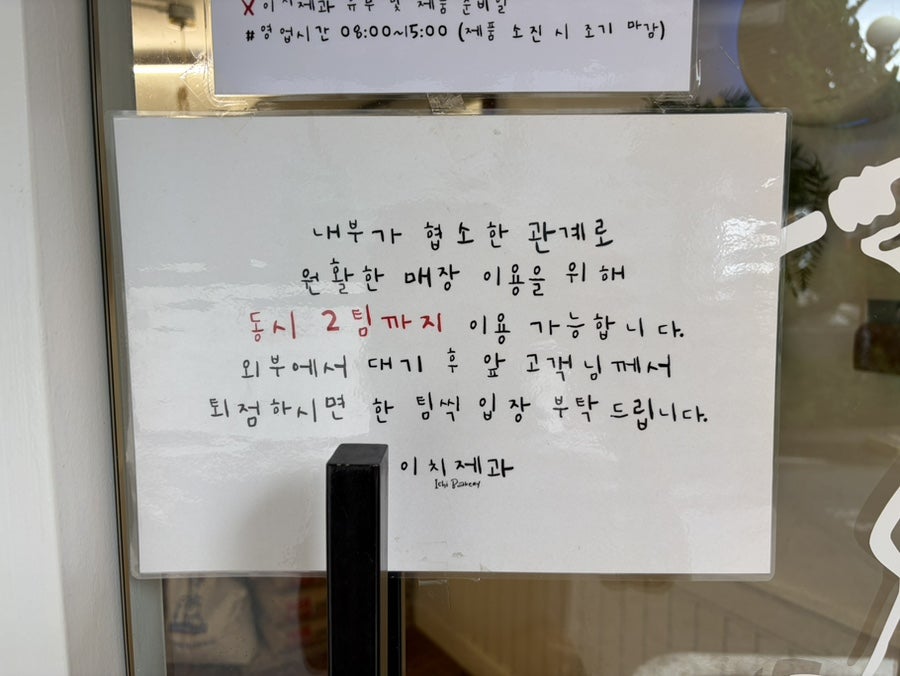 X 이치제과 휴무 및 제품 준비일
#영업시간 08:00~15:00 (제품 소진 시 조기 마감)
내부가 협소한 관계로
원활한 매장 이용을 위해
동시 2팀까지 이용 가능합니다.
외부에서 대기 후 앞 고객님께서
퇴점하시면 한 팀씩 입장 부탁 드립니다.
이치제과
Ichi Bakery